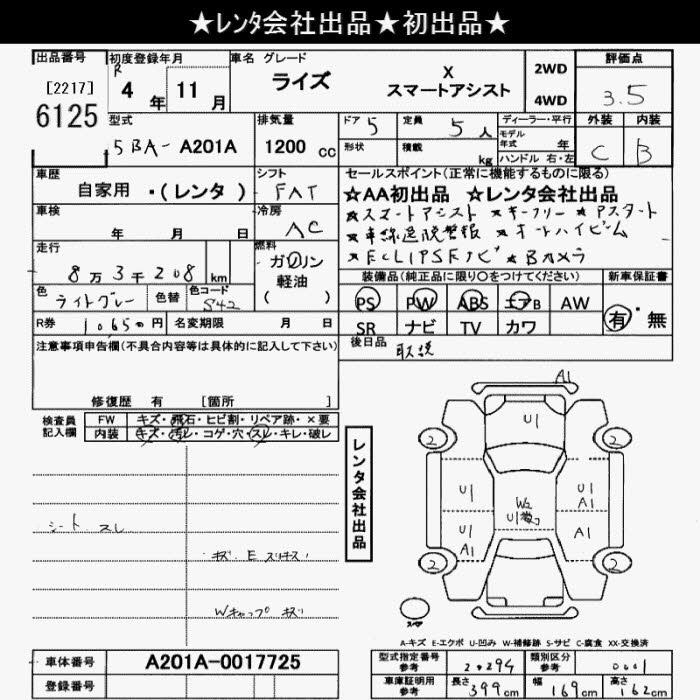 ★レンタ会社出品★初出品★
出品番号 初度登録年月 車名 グレード 評価点
[2217] R 4年 11月 ライズ X スマートアシスト 2WD 4WD 3.5
6125
型式 排気量 ドア 5 定員 5人 ディーラー・平行 外装 内装
5BA-A201A 1200cc 形状 積載 kg モデル年式 年 C B
ハンドル 右・左
車歴 シフト セールスポイント(正常に機能するものに限る)
自家用 ・(レンタ) FAT ★AA初出品 ☆レンタ会社出品
車検 冷房 ★スマートアシスト ★キーフリー ★Pスタート
年 月 日 AC ★車線逸脱警報 ★オートハイビーム
走行 燃料 ★ECLIPSEナビ ★Bカメラ
8万3千208km ガソリン
軽油
( )
装備品(純正品に限り○をつけてください) 新車保証書
色 ライトグレー 色替 色コード S42 PS PW ABS エアB AW 有・無
R券 10,650円 名変期限 月 日 SR ナビ TV カワ
注意事項申告欄(不具合内容等は具体的に記入して下さい) 後日品 取説
修復歴 有 [箇所 ]
検査員記入欄 FW キズ・飛石・ヒビ割・リペア跡・×要
内装 キズ・汚レ・コゲ・穴・スレ・キレ・破レ
レンタ会社出品
シート スレ
Wキャップ キズ
A1
U1
2 2
U1 U1
A1
W2
U1
U1 A1
A1
2 2
スペア
A-キズ E-エクボ U-凹み W-補修跡 S-サビ C-腐食 XX-交換済
車体番号 A201A-0017725 型式指定番号 参考 20294 類別区分 参考 0001
登録番号 車庫証明用 参考 長さ 399cm 幅 169cm 高さ 162cm